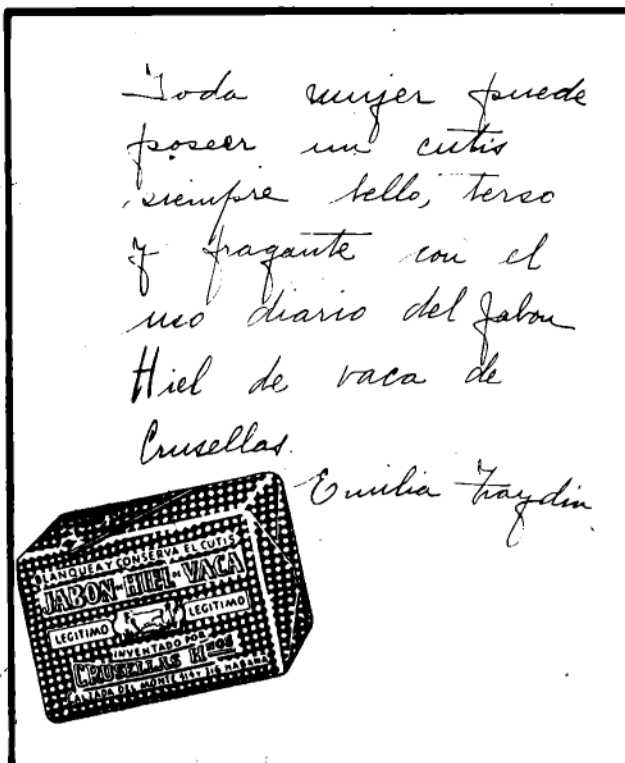 Toda mujer puede
poseer un cutis
siempre bello, terso
y fragante con el
uso diario del Jabon
Hiel de vaca de
Crusellas.
Emilia
BLANQUEA Y CONSERVA EL CUTIS
JABON DE HIEL DE VACA
LEGITIMO LEGITIMO
INVENTADO POR
CRUSELLAS Hnos
CALZADA DEL MONTE 314 Y 316 HABANA